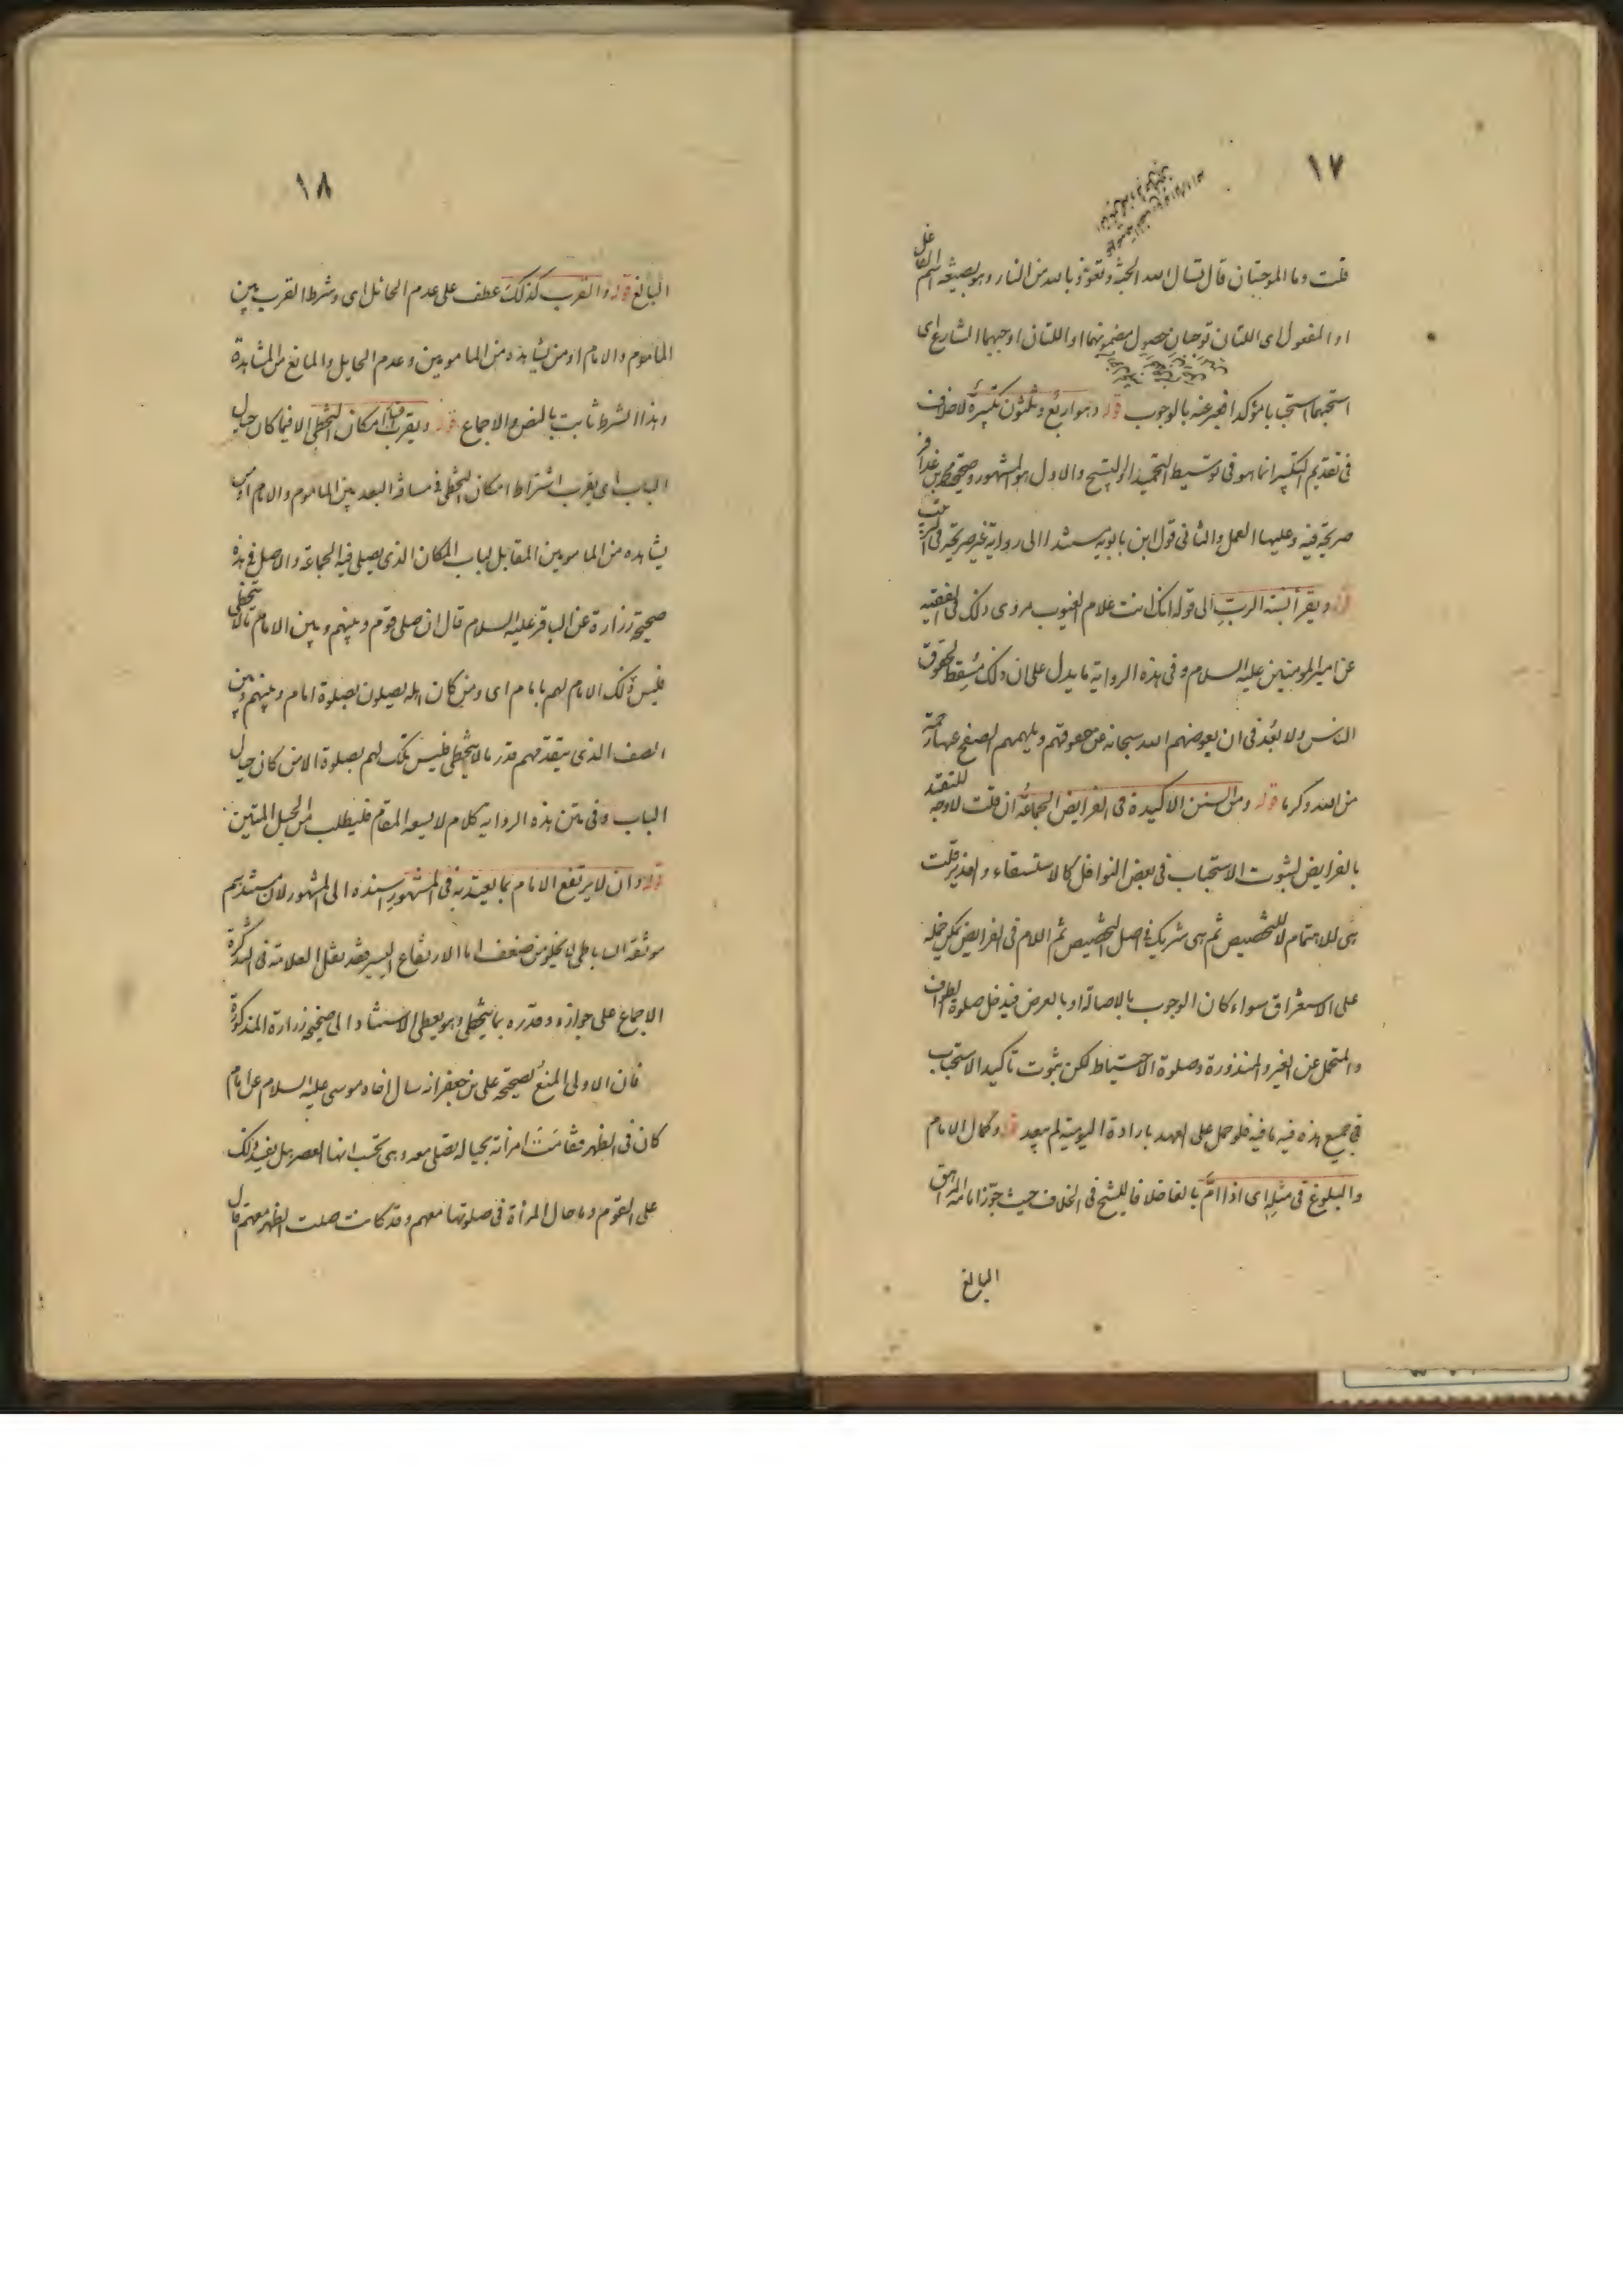 ١٧
قلت وما الموجبتان قال تسال الله الجنة وتعوذ بالله من النار وهو بصيغة اسم الفاعل
او المفعول اى اللتان توجبان حصول مضمونهما او اللتان اوجبهما الشارع اى
استحبهما استحبابا مؤكدا فعبر عنه بالوجوب قوله وهو اربع وثلثون تكبيرة لا خلاف
فى تقديم التكبير انما هو فى توسيط التحميد او التسبيح والاول هو المشهور وصحيحة محمد بن عذافر
صريحة فيه وعليها العمل والثانى قول ابن بابويه استنادا الى رواية غير صريحة فى الترتيب
قوله ويقرأ نسبة الرب الى قوله انك انت علام الغيوب مروى ذلك فى الفقيه
عن امير المومنين عليه السلام وفى هذه الرواية ما يدل على ان ذلك مسقط لحقوق
الناس ولا بعد فى ان يعوضهم الله سبحانه عن حقوقهم ويلهمهم الصفح عنها رحمة
من الله وكرما قوله ومن السنن الاكيدة فى الفرايض الجماعة ان قلت لا وجه للتقييد
بالفرايض لثبوت الاستحباب فى بعض النوافل كالاستسقاء والغدير قلت
هى للاهتمام لا للتخصيص ثم هى شريك فى اصل التخصيص ثم اللام فى الفرايض يمكن حمله
على الاستغراق سواء كان الوجوب بالاصالة او بالعرض فيدخل صلوة الطواف
والمتحمل عن الغير والمنذورة وصلوة الاحتياط لكن ثبوت تاكيد الاستحباب
فى جميع هذه فيه ما فيه فلو حمل على العهد بارادة اليومية لم يبعد قوله وكمال الامام
والبلوغ فى مثله اى اذا ام بالغا خلافا للشيخ فى الخلاف حيث جوز امامة المراهق
البالغ
١٨
البالغ قوله والقرب كذلك عطف على عدم الحائل اى وشرط القرب بين
الماموم والامام او من يشاهده من المامومين وعدم الحايل والمانع من المشاهدة
وهذا الشرط ثابت بالنص والاجماع قوله ويقرب هنا امكان التخطى الا فيما كان حيال
الباب اى يقرب اشتراط امكان التخطى فى مسافة البعد بين الماموم والامام او من
يشاهده من المامومين المقابل لباب المكان الذى يصلى فيه الجماعة والاصل فى هذه
صحيحة زرارة عن الباقر عليه السلام قال ان صلى قوم وبينهم وبين الامام ما لا يتخطى
فليس ذلك الامام لهم بامام اى ومن كان اهله يصلون بصلوة امام وبينهم وبين
الصف الذى يتقدمهم قدر ما لا يتخطى فليس تلك لهم بصلوة الا من كان حيال
الباب وفى متن هذه الرواية كلام لا يسعه المقام فليطلب من الحبل المتين
قوله وان لا يرتفع الامام بما يعتد به فى المشهور اسنده الى المشهور لان مستندهم
موثقة الساباطى لا يخلو من ضعف اما الارتفاع اليسير فقد نقل العلامة فى التذكرة
الاجماع على جوازه وقدره بما يتخطى وهو يعطى الاستناد الى صحيحة زرارة المذكورة
فان الاولى المنع لصحيحة على بن جعفر انه سال اخاه موسى عليه السلام عن امام
كان فى الظهر فقامت امرأته بحياله تصلى معه وهى تحسب انها العصر هل يفسد ذلك
على القوم وما حال المرأة فى صلوتها معهم وقد كانت صلت الظهر معهم قال